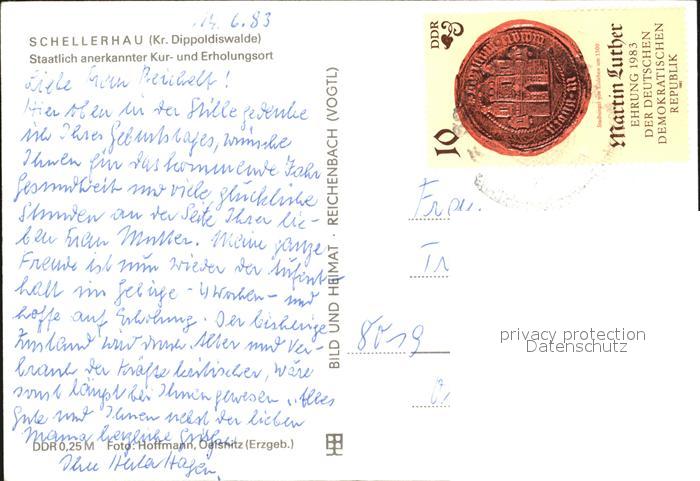 14.6.83
SCHELLERHAU (Kr. Dippoldiswalde)
Staatlich anerkannter Kur- und Erholungsort
Liebe Frau !
Hier oben in der Stille gedenke
ich Ihres Geburtstages, wünsche
Ihnen für das kommende Jahr
Gesundheit und viele glückliche
Stunden an der Seite Ihrer lie-
ben Frau Mutter. Meine ganze
Freude ist nun wieder der Aufent-
halt im Gebirge - 4 Wochen - und
hoffe auf Erholung. Der bisherige
Zustand wird Alter und Ver-
brauch der Kräfte kritischer, wäre
sonst längst bei Ihnen gewesen. Alles
Gute und Ihnen nebst der lieben
Mama herzliche Grüße
Ihre Herta
DDR 0,25 M Foto: Hoffmann, Oelsnitz (Erzgeb.)
BILD UND HEIMAT · REICHENBACH (VOGTL)
DDR
10
Martin Luther
EHRUNG 1983
DER DEUTSCHEN
DEMOKRATISCHEN
REPUBLIK
Frau
Tr
8019
privacy protection
Datenschutz